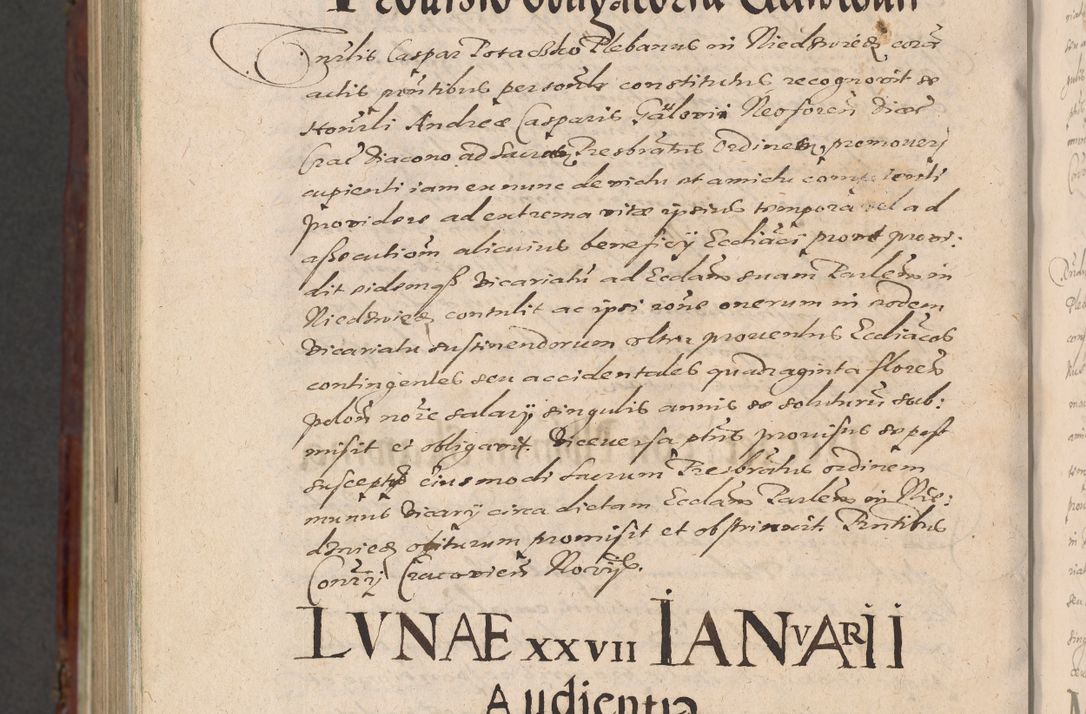 Venerabilis Caspar Potaczko Plebanus in Niedzwiedz corā
actis pñtibus persoñlr constitutus recognovit se
Honrli Andreæ Casparis Neoforeñ Diæc
Crac̃ Diacono ad Sacrum Presbrātus Ordinem promoveri
cupienti iam ex nunc de victu et amictu competenti
providere ad extrema vitæ ipsius tempora vel ad
assecutioñ alicuius beneficÿ Eccliãci prout provi:
dit eidemqʒ Vicariatũ ad Ecclam̃ suam Parlem̃ in
Niedzwiedz contulit ac ipsi roñe onerum in eodem
Vicariatu sustinendorum ultra proventus Eccliãcos
contingentes seu accidentales quadraginta floreñ
poloñ noĩe salarÿ singulis annis se soluturũ sub:
misit et obligavit. Viceversa ptũs provisus se post
susceptũ eiusmodi Sacrum Presbrātus ordinem
munus Vicarÿ circa dictam Ecclam̃ Parlem̃ in Nie:
dzwiedz obiturum promisit et obstrinxit Pñtibus
Cracovieñ
LVNAE XXVII IANVARII
Audientia